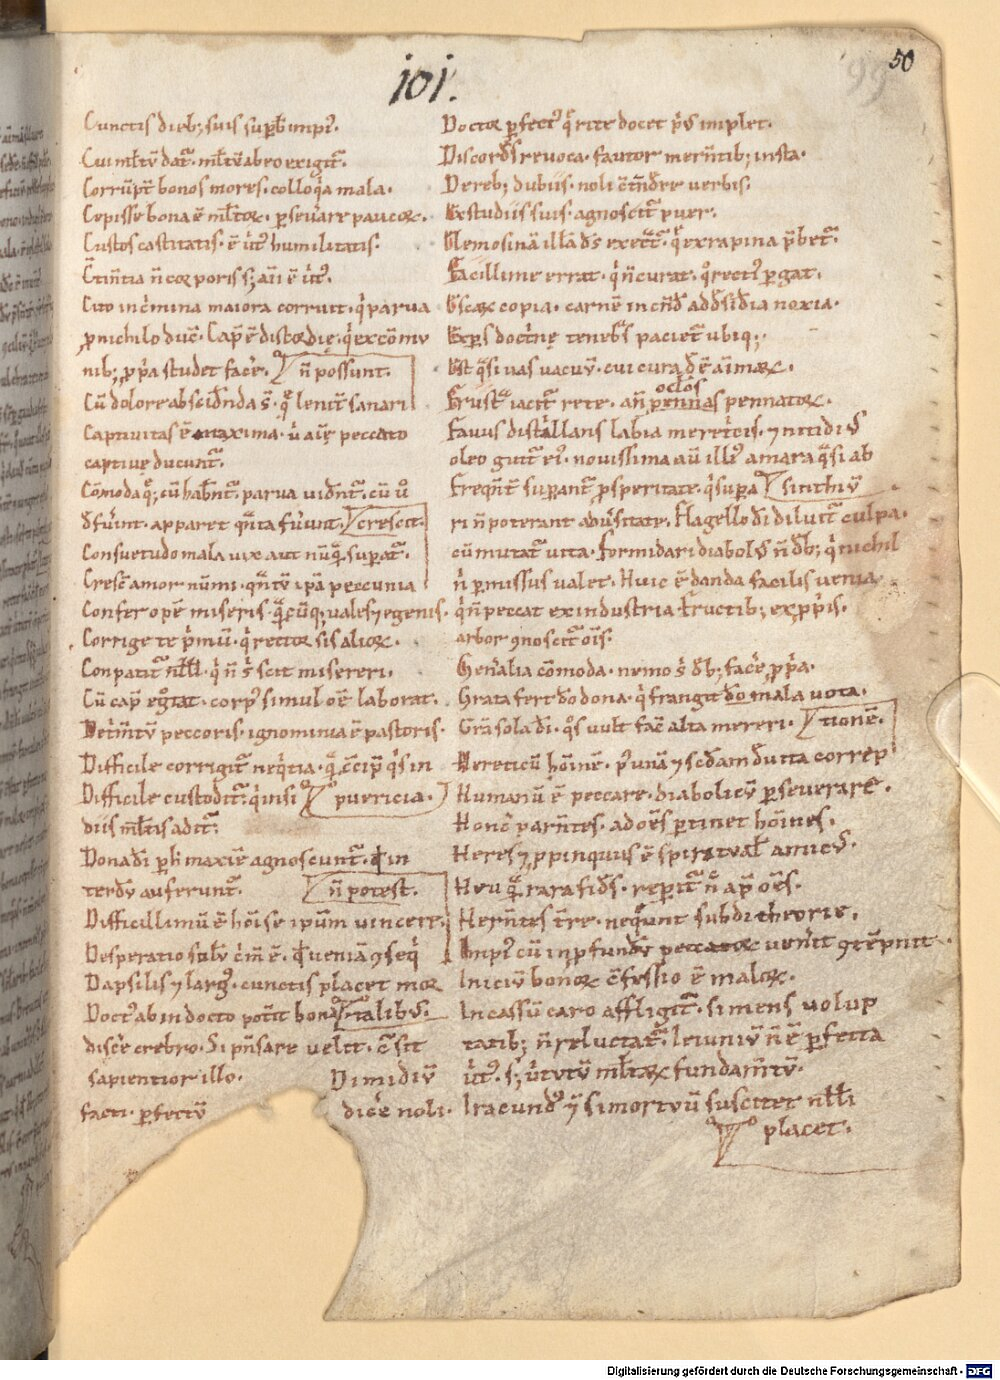 101.
50
99
Cunctis dieb; suis supb impi᷒.
Cui mltū dat᷒. mltū ab eo exigit᷒.
Corrūpt bonos mores. colloq̇a mala.
Cepisse bona ē mltoꝝ. pseuare paucoꝝ.
Custos castitatis. ē uirt᷒ humilitatis.
n̄ corporis s; ai ē uirt᷒.
Cito in cmina maiora corruit. q̇ parua
p nichilo duc̄. Cap ē discordię. q̇ ex cōmu
nib; ppa studet facē. n̄ possunt.
Cū dolore abscidnda s̄. q̄ lenit sanari
Captiuitas ē maxima. u aię peccato
captiuę ducunt᷒.
Cōmoda q; cū habnt᷒. parua uidnt᷒. cū ū
dfuint. apparet q̄ta fuunt. crescit.
Consuetudo mala uix aut nūq̄. supat᷒.
Cresc̄ amor nūmi. q̄ntū ipa peccunia
Confer opē miseris. q̄cūq; uales ⁊ egenis.
Corrige te pmū. q̇ rector sis alioꝝ.
Conpatit᷒ nlli. q̇ n̄ s scit misereri.
Cū cap egtat. corp᷒ simul oē laborat.
Detimtū peccoris. ignominia ē pastoris.
Difficile corrigit᷒ neq̇tia. q̄ q̇s in
Difficile custodit᷒. q̇ insi puericia.
diis mltis adit᷒.
Dona di p li maxiē agnoscunt᷒. in
terdū auferunt᷒. n̄ potest.
Difficillimū ē hōi se ipum uincere.
Desperatio solū cm̄ ē. q̄ ueniā 9seq̇
Dapsilis ⁊ larg᷒. cunctis placet mor
Doct᷒ ab indocto potit bona talibus.
discē crebro. Si pnsare uelit. sit
sapientior illo. Dimidiū
facti. pfectū dicē noli.
Doctor pfect᷒ q̇ rite docet p᷒ implet.
Discordes reuoca. fautor merntib; insta.
De reb; dubiis. noli ctndre uerbis.
Ex studiis suis. agnoscit᷒ puer.
Elemosinā illā ds execrat᷒. q̄ ex rapina pbet᷒.
Facillime errat. q̇ n curat. q̊ rect᷒ pgat.
Escaꝝ copia. carnē incnd addsidia noxia.
Exps doctnę tenebs paciet᷒ ubiq;.
Est q̄si uas uacuū. cui cura d ē aīmaꝝ.
oclos
Frust᷒ iacit᷒ rete. an pennas pennatoꝝ.
Fauus distillans labia meretcis. ⁊ nitidi᷒
oleo gutt᷒ ei᷒. nouissima aū illi᷒ amara q̄si ab
Freqnt supant psperitate. q̇ supa sinthiū
ri n poterant aduersitate. Flagello di diluit᷒ culpa.
cū mutat᷒ uita. Formidari diabol᷒ n db; q̇ nichil
n pmissus ualet. Huic ē danda facilis uenia.
q̇ n peccat ex industria. Fructib; ex ppis.
arbor 9noscit᷒ ois.
Genalia cōmoda. nemo s db; facē ppa.
Grata fert do dona. q̇ frangit do mala uota.
Grā sola di. q̊s uult fac alta mereri. tionē.
Hereticū hoinē. p᷒ unā ⁊ scdam duita correp
Humanū ē peccare. diabolicū pseuerare.
Honc̄ parntes. ad oēs ptinet hoines.
Heres ⁊ ppinquus ē spiritual amic᷒.
Heu q̄ rara fids. repit᷒ n ap oēs.
Herntes tre. neq̄unt subdi theorie.
Impi᷒ cū in pfundū peccatoꝝ uenit 9tēpnit.
Iniciū bonoꝝ cfessio ē maloꝝ.
Incassū caro affligit᷒. si mens uolup
tatib; n reluctat᷒. Ieiuniū n ē pfecta
uirt᷒. s; uirtutū mltaꝝ fundamtū.
Iracund᷒ si mortuū suscitet nlli
placet.
Digitalisierung gefördert durch die Deutsche Forschungsgemeinschaft - DFG